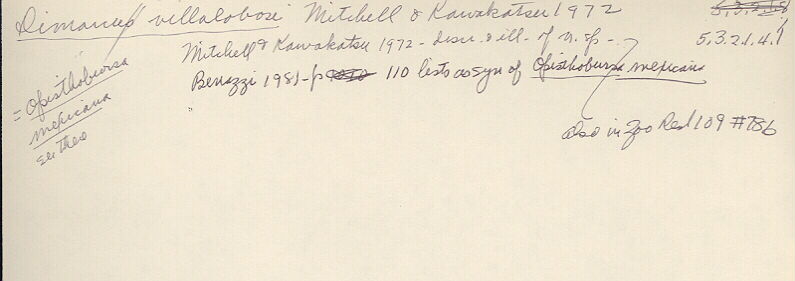 Dimarcus villalobosi Mitchell & Kawakatsu 1972
5.3.2.1.4.1
Mitchell & Kawakatsu 1972 - descr. & ill. of n. sp. -
Benazzi 1981 - p 110 lists as syn of Opisthobursa mexicana
= Opisthobursa
mexicana
see there
also in Zoo Rec 109 #786